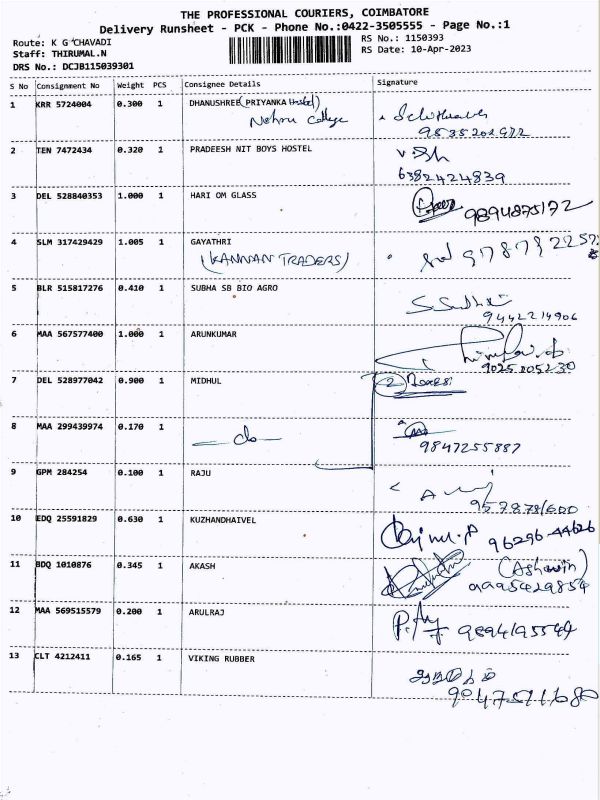 THE PROFESSIONAL COURIERS, COIMBATORE
Delivery Runsheet - PCK - Phone No.:0422-3505555 - Page No.:1
Route: K G CHAVADI
Staff: THIRUMAL.N
DRS No.: DCJB115039301
RS No.: 1150393
RS Date: 10-Apr-2023
S No Consignment No Weight PCS Consignee Details Signature
1 KRR 5724004 0.300 1 DHANUSHREE(PRIYANKA Hostel)
Nehru College
2 TEN 7472434 0.320 1 PRADEESH NIT BOYS HOSTEL
6382424839
3 DEL 528840353 1.000 1 HARI OM GLASS
9894875172
4 SLM 317429429 1.005 1 GAYATHRI
(KANNAN TRADERS)
5 BLR 515817276 0.410 1 SUBHA SB BIO AGRO
9442214906
6 MAA 567577400 1.000 1 ARUNKUMAR
9025205230
7 DEL 528977042 0.900 1 MIDHUL
2
8 MAA 299439974 0.170 1 do
9847255887
9 GPM 284254 0.100 1 RAJU
10 EDQ 25591829 0.630 1 KUZHANDHAIVEL
96296-44626
11 BDQ 1010876 0.345 1 AKASH (Ashwin)
9995429854
12 MAA 569515579 0.200 1 ARULRAJ
9894195544
13 CLT 4212411 0.165 1 VIKING RUBBER